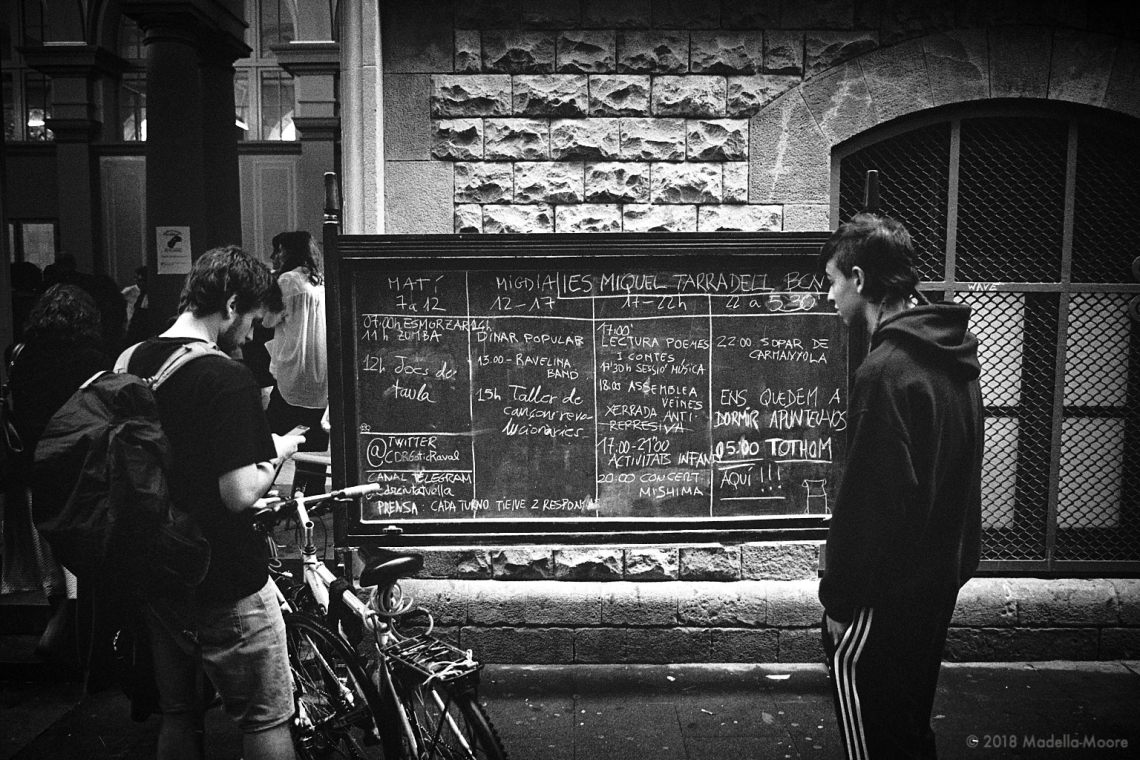 MATÍ
7 a 12
07:00h ESMORZAR
11h ZUMBA
12h Jocs de
taula
@ TWITTER
CDR6sticRaval
CANAL TELEGRAM
PRENSA: CADA TURNO TIEVE 2 RESPON
MIGDIA
12-17
14h
DINAR POPULAR
13.00 - RAVELINA
BAND
15h Taller de
cançons reva
lucionàries
IES MIQUEL TARRADELL BCN
17-22h
17:00'
LECTURA POEMES
I CONTES
17'30h SESSIÓ MÚSICA
18.03 ASSEMBLEA
VEÏNES
XERRADA ANTI-
REPRESIVA
17.00-21'00
ACTIVITATS INFANT
20:00 CONCERT
MISHIMA
22 a 5:30
22:00 SOPAR DE
CARMANYOLA
ENS QUEDEM A
DORMIR APUNTEU-VOS
05:00 TOTHOM
AQUÍ !!!
WAVE
© 2018 Madella-Moore